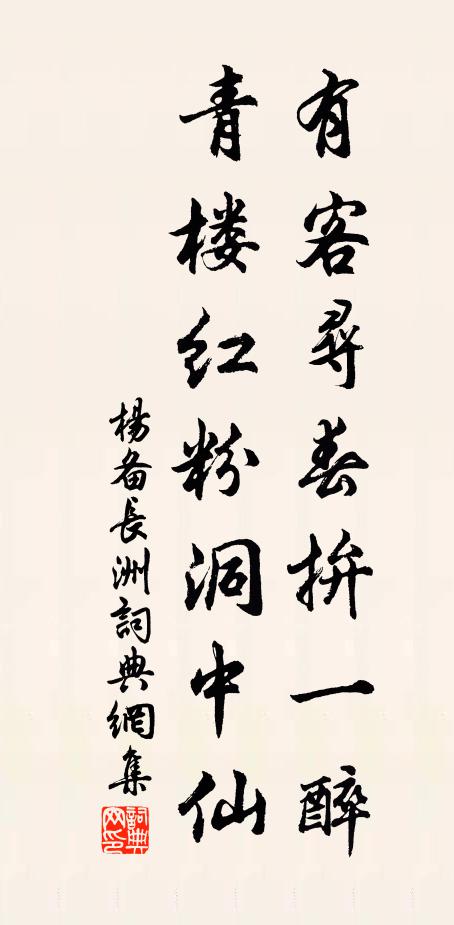 有客尋春拚一醉
青楼红粉洞中仙
楊备長洲詞典網集
詞典網印